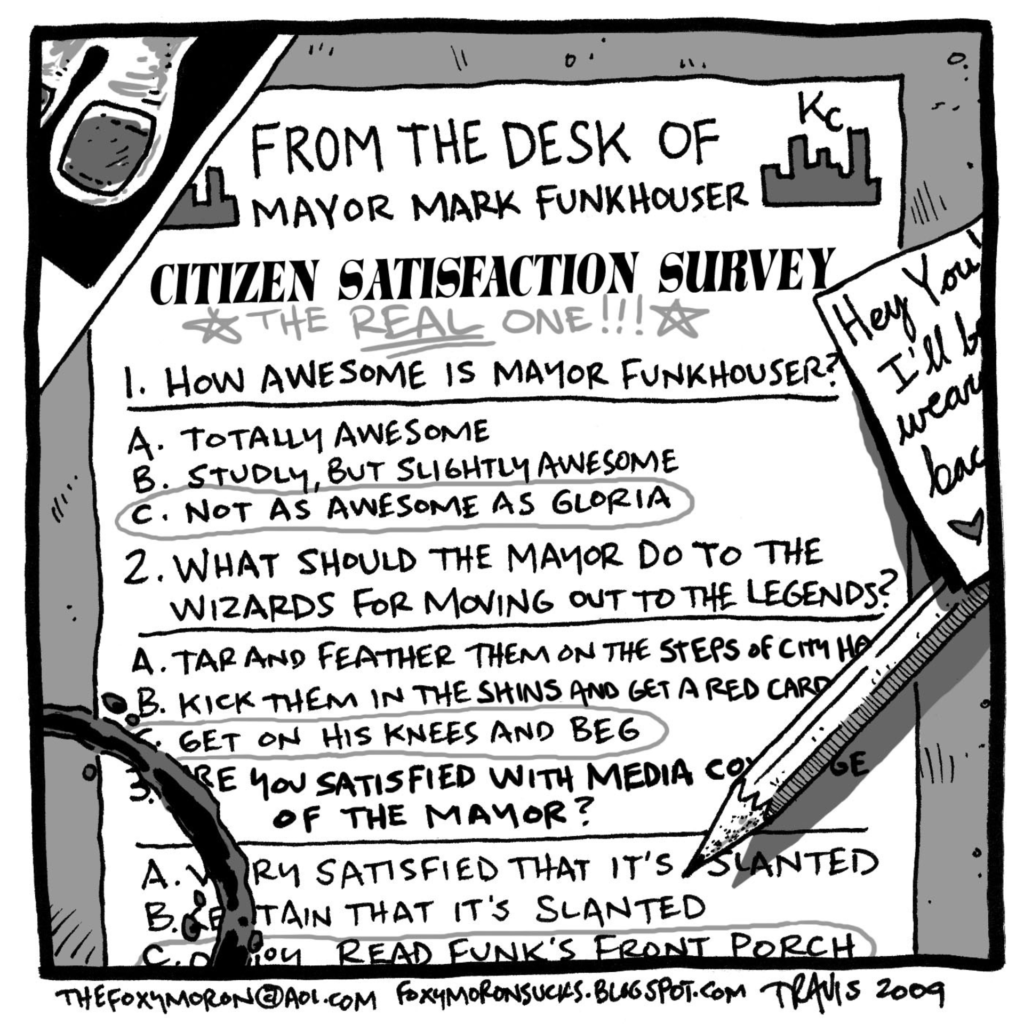 KC
FROM THE DESK OF
MAYOR MARK FUNKHOUSER
CITIZEN SATISFACTION SURVEY
THE REAL ONE!!!
1. HOW AWESOME IS MAYOR FUNKHOUSER?
A. TOTALLY AWESOME
B. STUDLY, BUT SLIGHTLY AWESOME
C. NOT AS AWESOME AS GLORIA
2. WHAT SHOULD THE MAYOR DO TO THE
WIZARDS FOR MOVING OUT TO THE LEGENDS?
A. TAR AND FEATHER THEM ON THE STEPS OF CITY
B. KICK THEM IN THE SHINS AND GET A RED CARD
C. GET ON HIS KNEES AND BEG
3. YOU SATISFIED WITH MEDIA
OF THE MAYOR?
A. SATISFIED THAT IT'S SLANTED
B. THAT IT'S SLANTED
C. READ FUNK'S FRONT PORCH
Hey You!
I'll
THEFOXYMORON@AOL.COM FOXYMORONSUCKS.BLOGSPOT.COM TRAVIS 2009